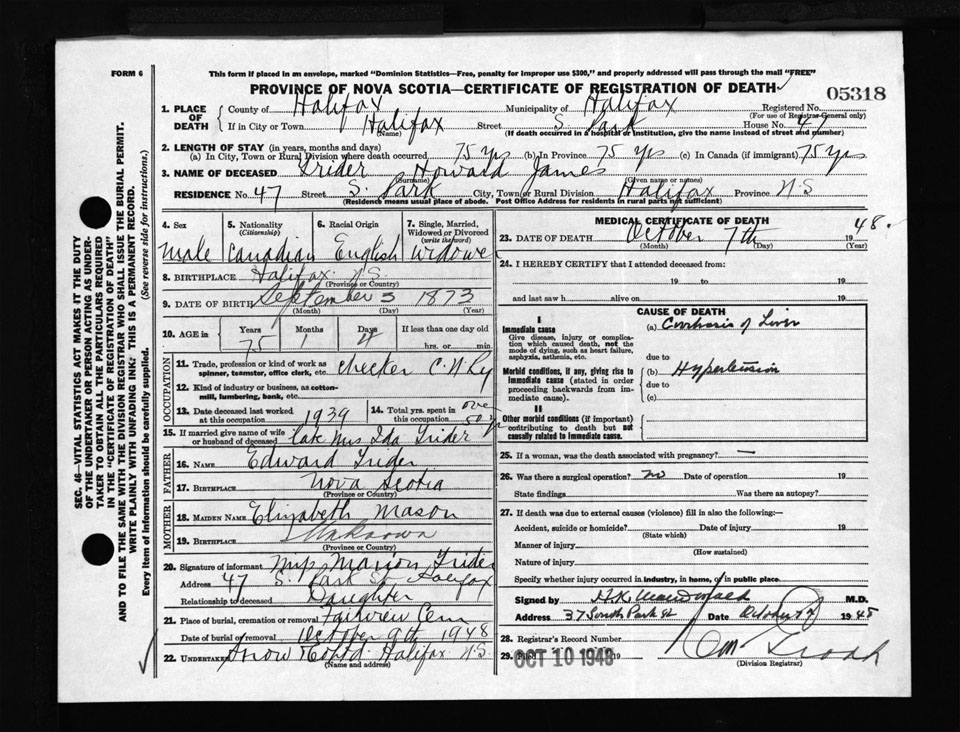 FORM 6
This form if placed in an envelope, marked "Dominion Statistics—Free, penalty for improper use $300," and properly addressed will pass through the mail "FREE"
PROVINCE OF NOVA SCOTIA—CERTIFICATE OF REGISTRATION OF DEATH
05318
1. PLACE OF DEATH
County of Halifax Municipality of Halifax Registered No.
(For use of Registrar-General only)
If in City or Town Halifax Street S. Park House No. 47
(Name) (If death occurred in a hospital or institution, give the name instead of street and number)
2. LENGTH OF STAY (in years, months and days)
(a) In City, Town or Rural Division where death occurred 75 yrs (b) In Province 75 yrs (c) In Canada (if immigrant) 75 yrs
3. NAME OF DECEASED Trider Howard James
(Surname) (Given name or names)
RESIDENCE No. 47 Street S. Park City, Town or Rural Division Halifax Province N.S
(Residence means usual place of abode. Post Office Address for residents in rural parts not sufficient)
SEC. 46—VITAL STATISTICS ACT MAKES IT THE DUTY
OF THE UNDERTAKER OR PERSON ACTING AS UNDER-
TAKER TO OBTAIN ALL THE PARTICULARS REQUIRED
IN THE "CERTIFICATE OF REGISTRATION OF DEATH"
AND TO FILE THE SAME WITH THE DIVISION REGISTRAR WHO SHALL ISSUE THE BURIAL PERMIT.
WRITE PLAINLY WITH UNFADING INK. THIS IS A PERMANENT RECORD.
Every item of Information should be carefully supplied. (See reverse side for instructions.)
4. Sex
male
5. Nationality
(Citizenship)
Canadian
6. Racial Origin
English
7. Single, Married,
Widowed or Divorced
(write the word)
Widower
8. BIRTHPLACE Halifax N.S.
(Province or Country)
9. DATE OF BIRTH September 3 1873
(Month) (Day) (Year)
10. AGE in
Years Months Days If less than one day old
75 1 4 hrs. or min.
OCCUPATION
11. Trade, profession or kind of work as
spinner, teamster, office clerk, etc. checker C.N.Ry
12. Kind of industry or business, as cotton-
mill, lumbering, bank, etc.
13. Date deceased last worked
at this occupation 1939
14. Total yrs. spent in
this occupation over 50 yrs
15. If married give name of wife
or husband of deceased late Mrs Ida Trider
FATHER
16. NAME Edward Trider
17. BIRTHPLACE Nova Scotia
(Province or Country)
MOTHER
18. MAIDEN NAME Elizabeth Mason
19. BIRTHPLACE Unknown
(Province or Country)
20. Signature of informant Marion Trider
Address 47 S. Park St. Halifax
Relationship to deceased Daughter
21. Place of burial, cremation or removal Fairview Cem
Date of burial or removal October 9th 1948
22. UNDERTAKER Snow & Co Ltd. Halifax N.S.
(Name and address)
MEDICAL CERTIFICATE OF DEATH
23. DATE OF DEATH October 7th 1948.
(Month) (Day) (Year)
24. I HEREBY CERTIFY that I attended deceased from:
19 to 19
and last saw h alive on 19
CAUSE OF DEATH
I
Immediate cause
Give disease, injury or complica-
tion which caused death, not the
mode of dying, such as heart failure,
asphyxia, asthenia, etc.
(a) Cirrhosis of Liver
due to
Morbid conditions, if any, giving rise to
immediate cause (stated in order
proceeding backwards from im-
mediate cause).
(b) Hypertension
due to
(c)
II
Other morbid conditions (if important)
contributing to death but not
causally related to immediate cause.
25. If a woman, was the death associated with pregnancy? —
26. Was there a surgical operation? no Date of operation 19
State findings Was there an autopsy?
27. If death was due to external causes (violence) fill in also the following:—
Accident, suicide or homicide? Date of injury 19
(State which)
Manner of injury
(How sustained)
Nature of injury
Specify whether injury occurred in industry, in home, or in public place.
Signed by H.K. MacDonald M.D.
Address 37 South Park St Date October 1948
28. Registrar's Record Number
29. Filed OCT 10 1948 19
(Division Registrar)